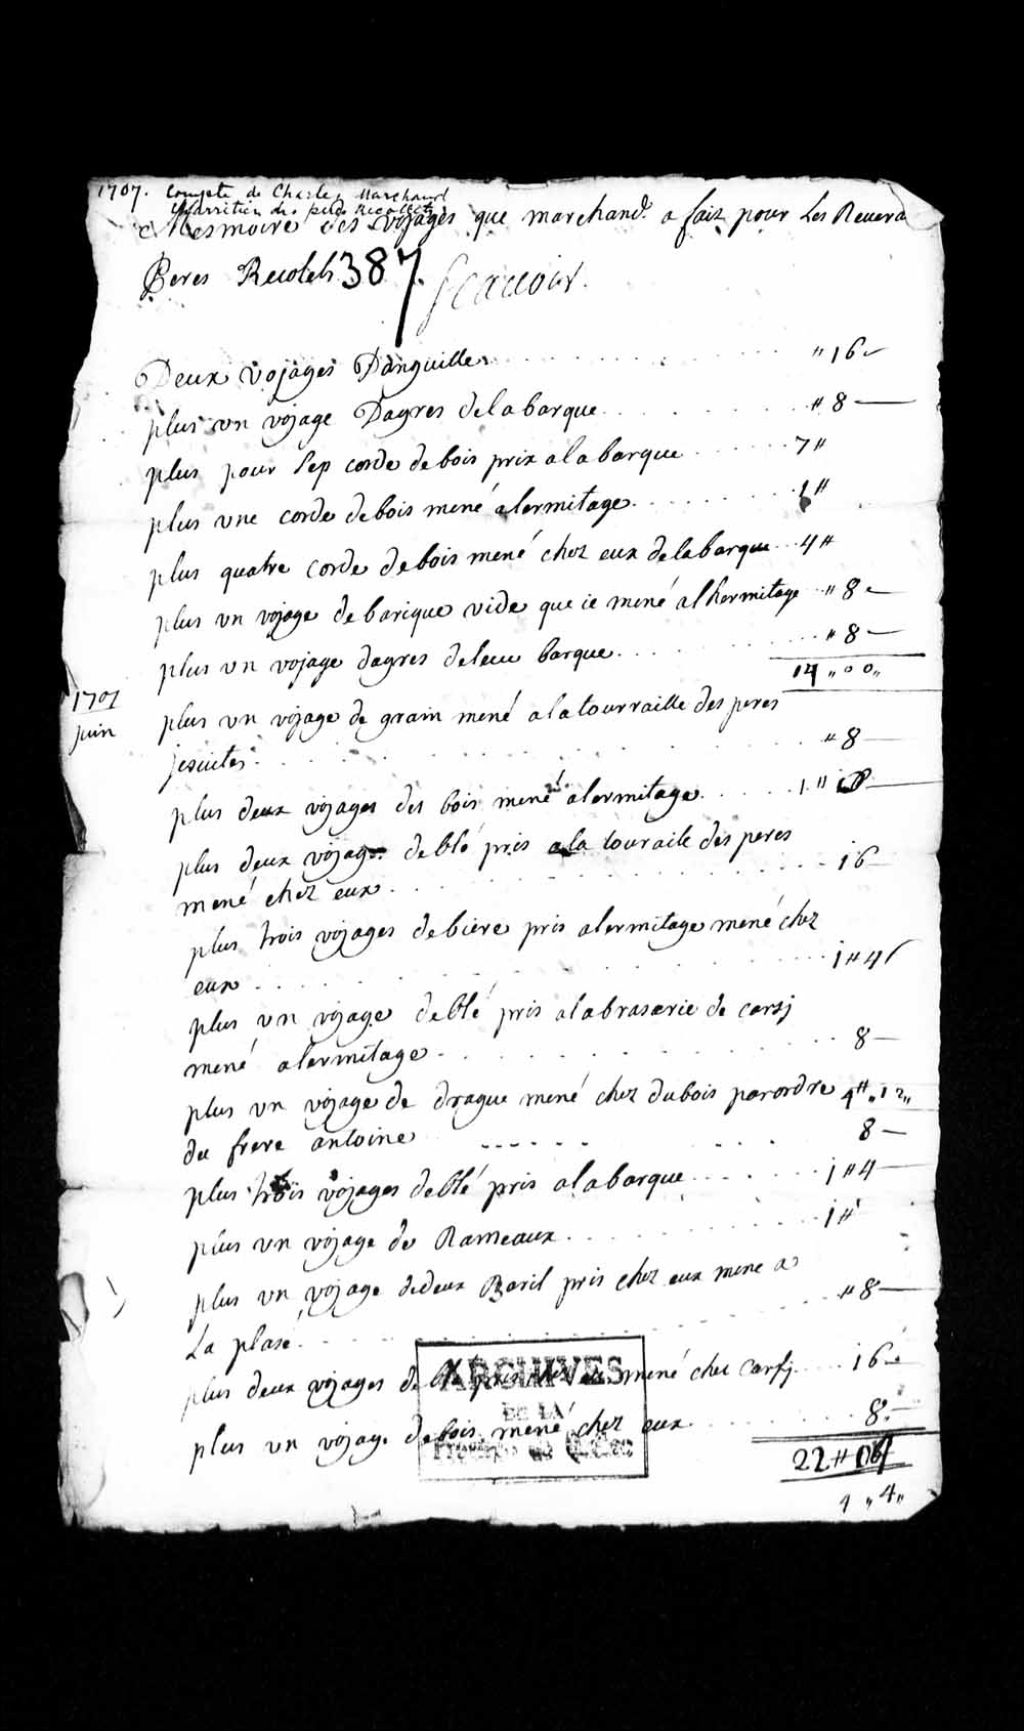 1707. Compte de Charles Marchand
Charretier des pères Recollets
Mesmoire des voyages que marchand a fait pour Les Reuera
Peres Recolets 387. Scauoir.
Deux vojages Danguille " 16
plus vn vojage Dagres de la barque " 8
plus pour sep corde de bois prix a la barque 7 "
plus vne corde de bois mené a lermitage 1 "
plus quatre corde de bois mené chez eux de la barque 4 "
plus vn vojage de barique vide que ie mené al hermitage " 8
plus vn vojage dagres de leur barque " 8
14 " 00 "
1707
juin
plus vn vojage de grain mené a la tourraille des peres
jesuites " 8
plus deux vojages des bois mené a lermitage 1 "
plus deux vojages de blé pris a la touraile des peres
mené chez eux 16
plus trois vojages de biere pris a lermitage mené chez
eux 1 " 4
plus vn vojage de blé pris a la braserie de carsj
mené a lermitage 8
plus vn vojage de drague mené chez dubois par ordre 4 " 12 "
du frere antoine 8
plus trois vojages de blé pris a la barque 1 " 4
plus vn vojage de Rameaux 1 "
plus vn vojage de deux Baril pris chez eux mene a
La plase " 8
plus deux vojages de blé pris chez eux mené chez carsj 16
plus vn vojage de bois mené chez eux 8
ARCHIVES
DE LA
Province de Québec
22 "
1 " 4 "